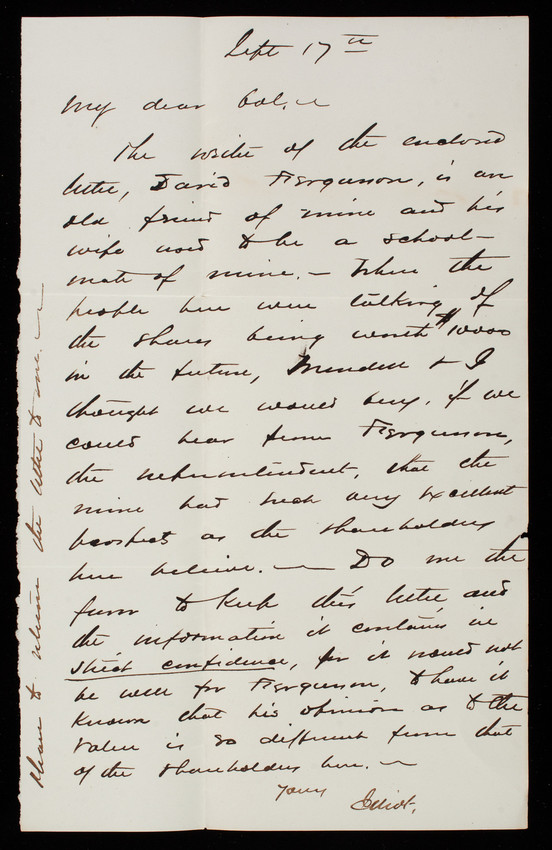 Sept 17th
My dear Col.
The writer of the enclosed
letter, David Ferguson, is an
old friend of mine and his
wife used to be a school-
mate of mine. — When the
people here were talking of
the shares being worth $10000
in the future, & I
thought we would buy, if we
could hear from Ferguson,
the superintendent, that the
mine had such very excellent
prospects as the shareholders
here believe. — Do me the
favor to keep this letter and
the information it contains in
strict confidence, for it would not
be well for Ferguson, to have it
known that his opinion as to the
value is so different from that
of the shareholders here. —
Yours
Elliot.
Please to return the letter to me. —